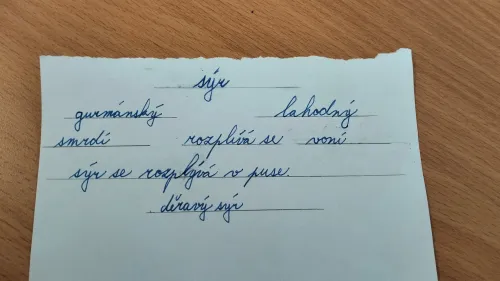 sýr
gurmánský lahodný
smrdí rozplívá se voní
sýr se rozplývá v puse.
děravý sýr